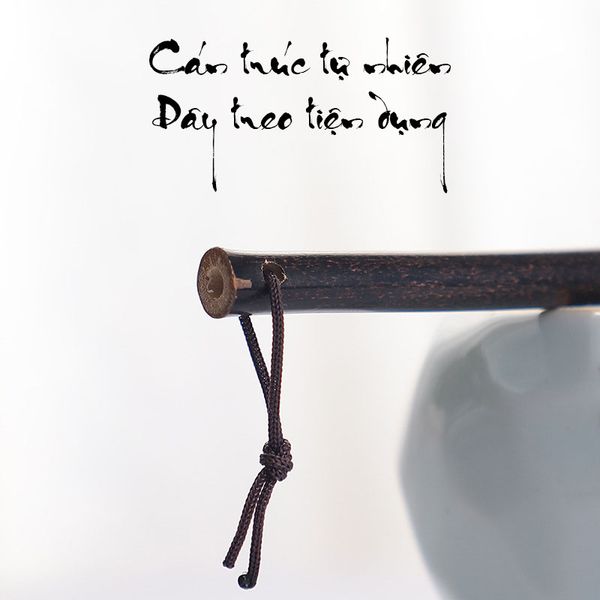 Cán trúc tự nhiên
Dây treo tiện dụng